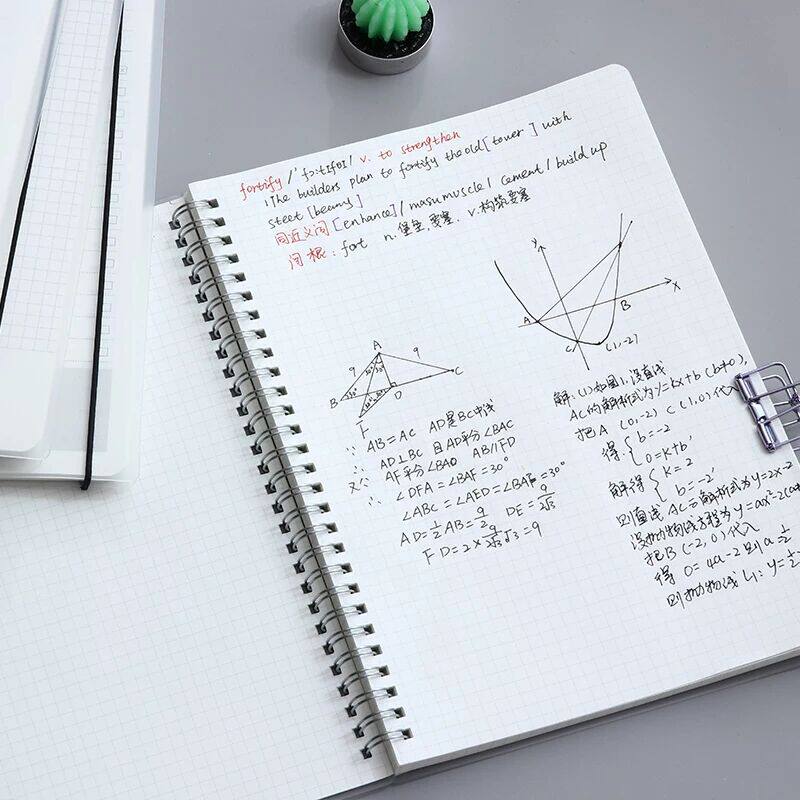 fortify /'fɔ:tɪfaɪ/ v. to strengthen
The builders plan to fortify the old [tower] with
steet [beamy]
同近义词 [enhance] / masumuscle / cement / build up
词根: fort n. 堡垒, 要塞 v. 构筑要塞
y
x
A
B
C
(1,-2)
A
9
9
B
30°
D
C
F
∵ AB=AC AD是BC中线
∴ AD⊥BC 且AD平分∠BAC
又∵ AF平分∠BAD AB//FD
∴ ∠DFA=∠BAF=30°
∠ABC=∠AED=∠BAE=30°
AD=½AB=9/2 DE=9/2√3
FD=2×9/2√3 √3=9
解:(1)如图1,设直线
AC的解析式为y=kx+b(b≠0),
把A(0,-2) C(1,0)代入
得 {b=-2
0=k+b
解得 {k=2
b=-2
则直线AC的解析式为y=2x-2
设抛物线方程为y=ax²-2(a≠
把B(-2,0)代入
得 0=4a-2 则a=½
则抛物线L₁: y=½